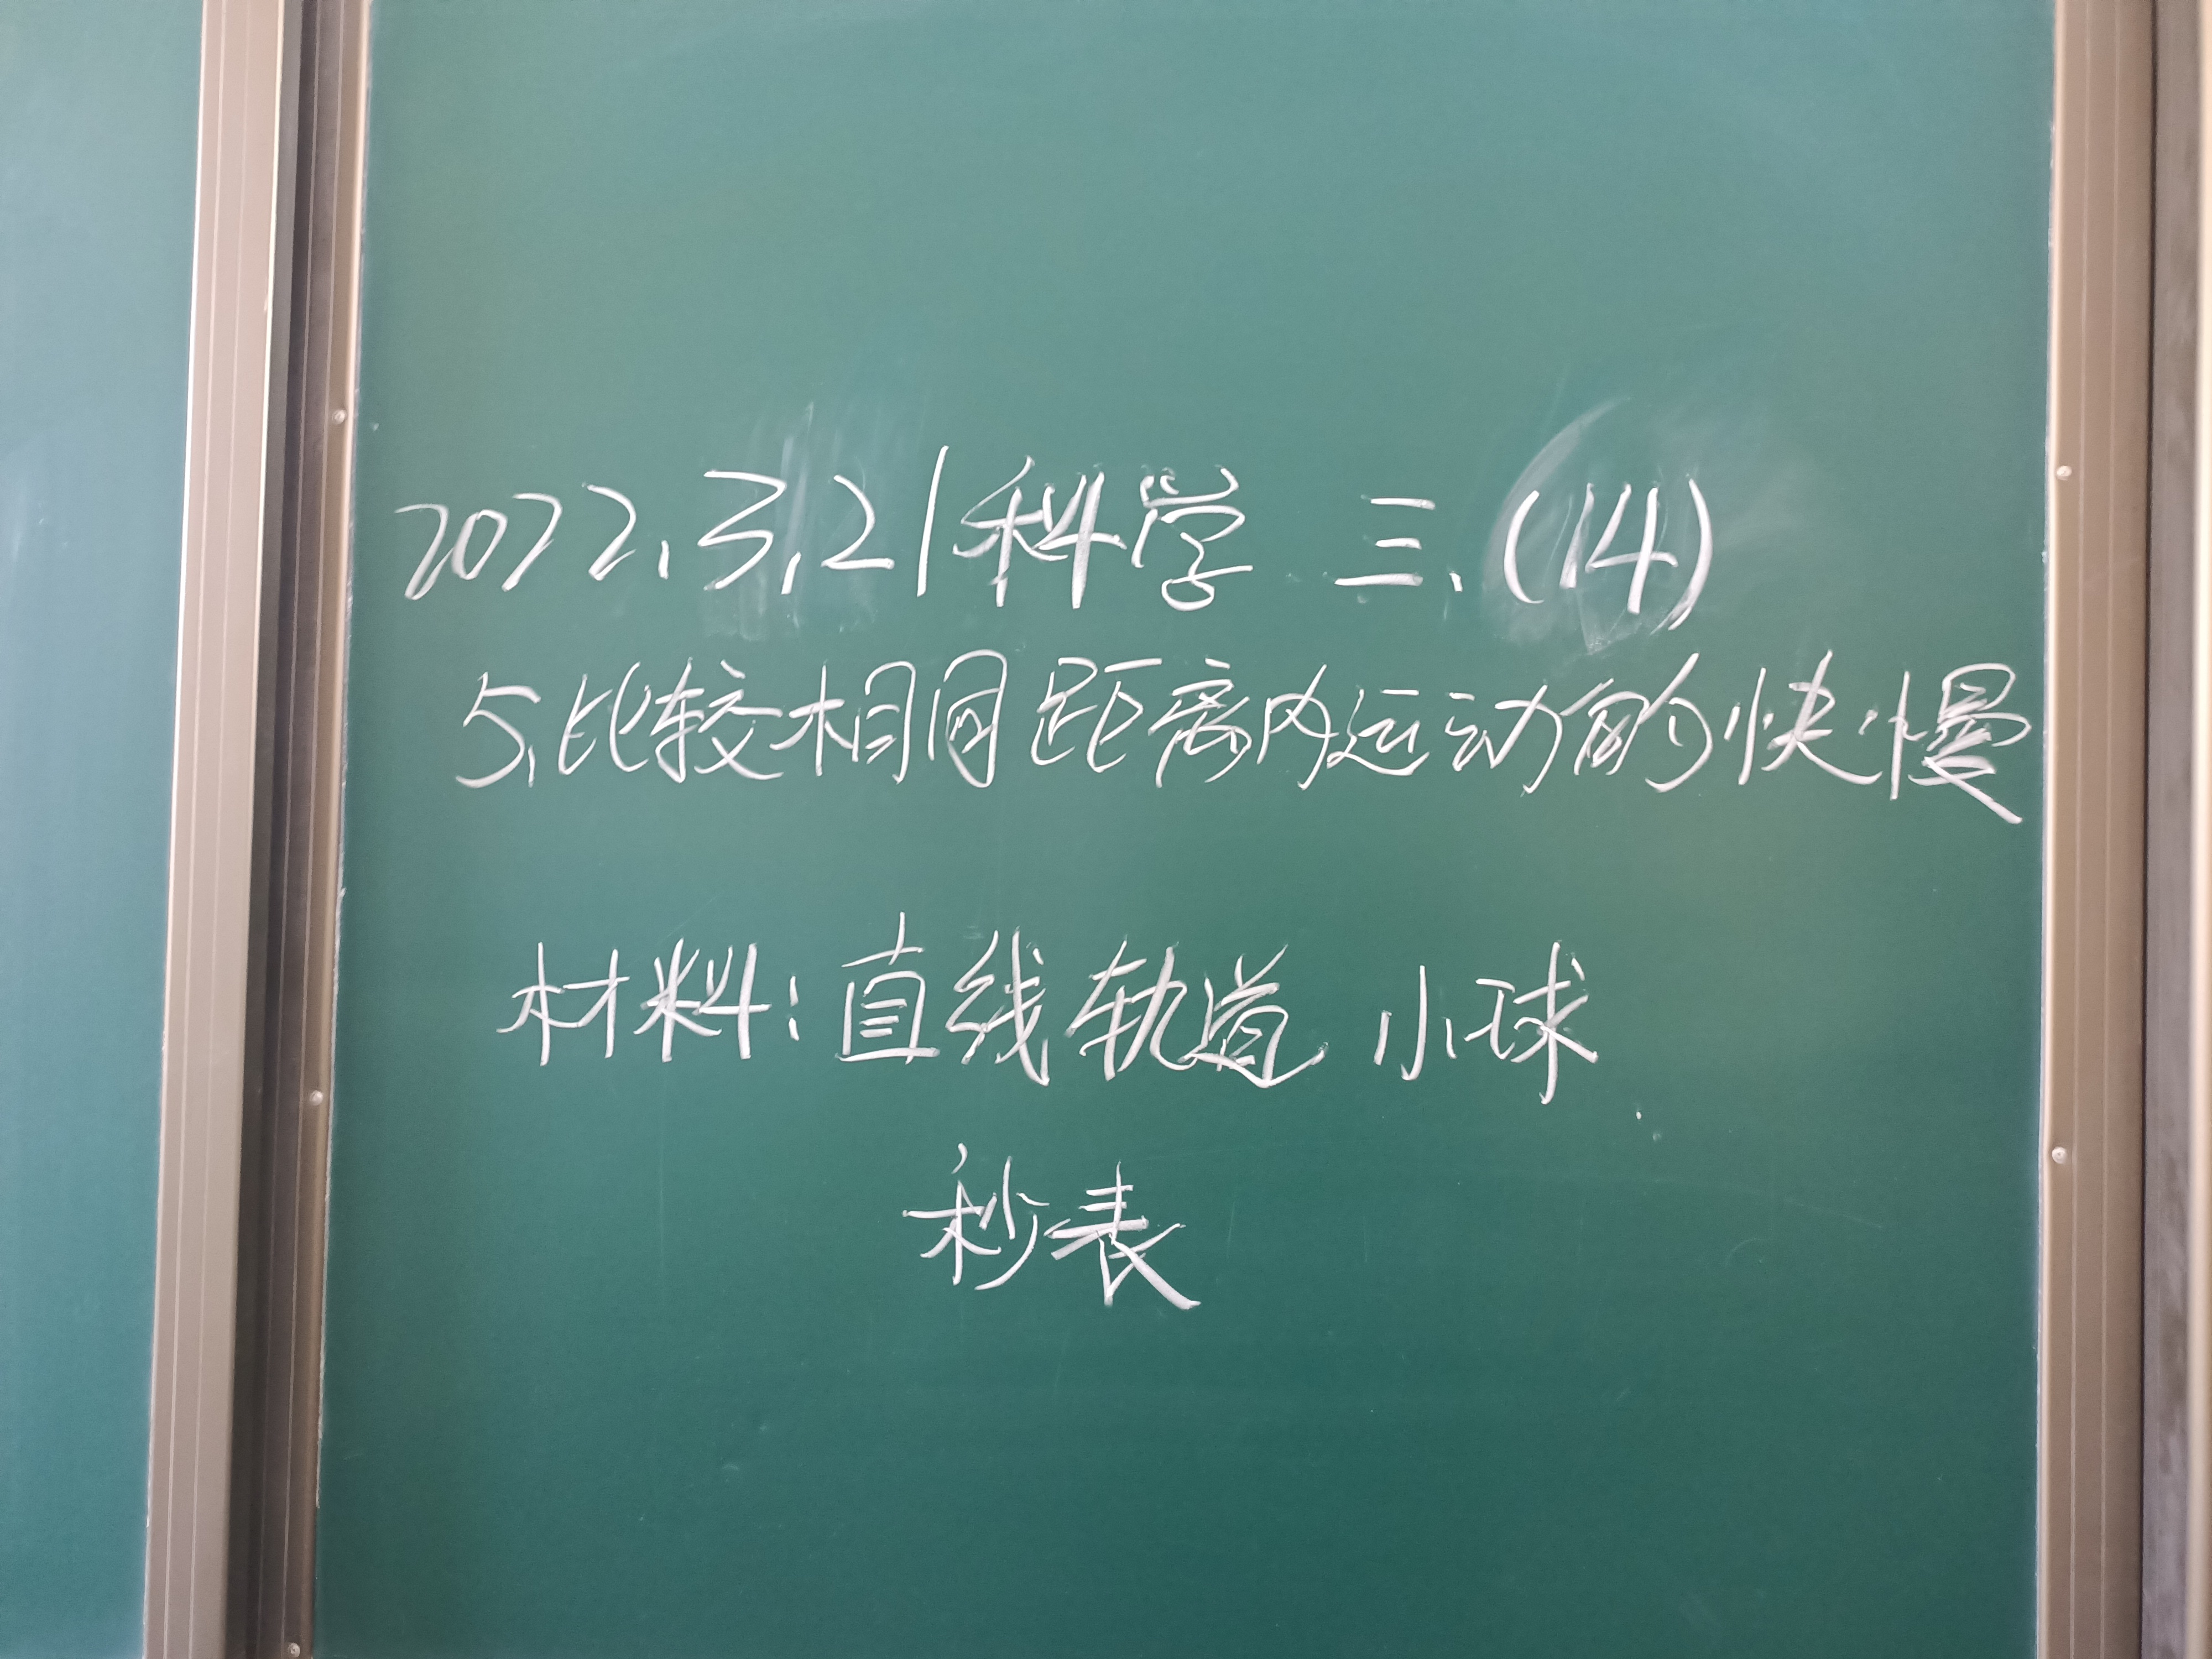 2022.3.21科学 三.(14)
5.比较相同距离内运动的快慢
材料:直线轨道 小球
秒表